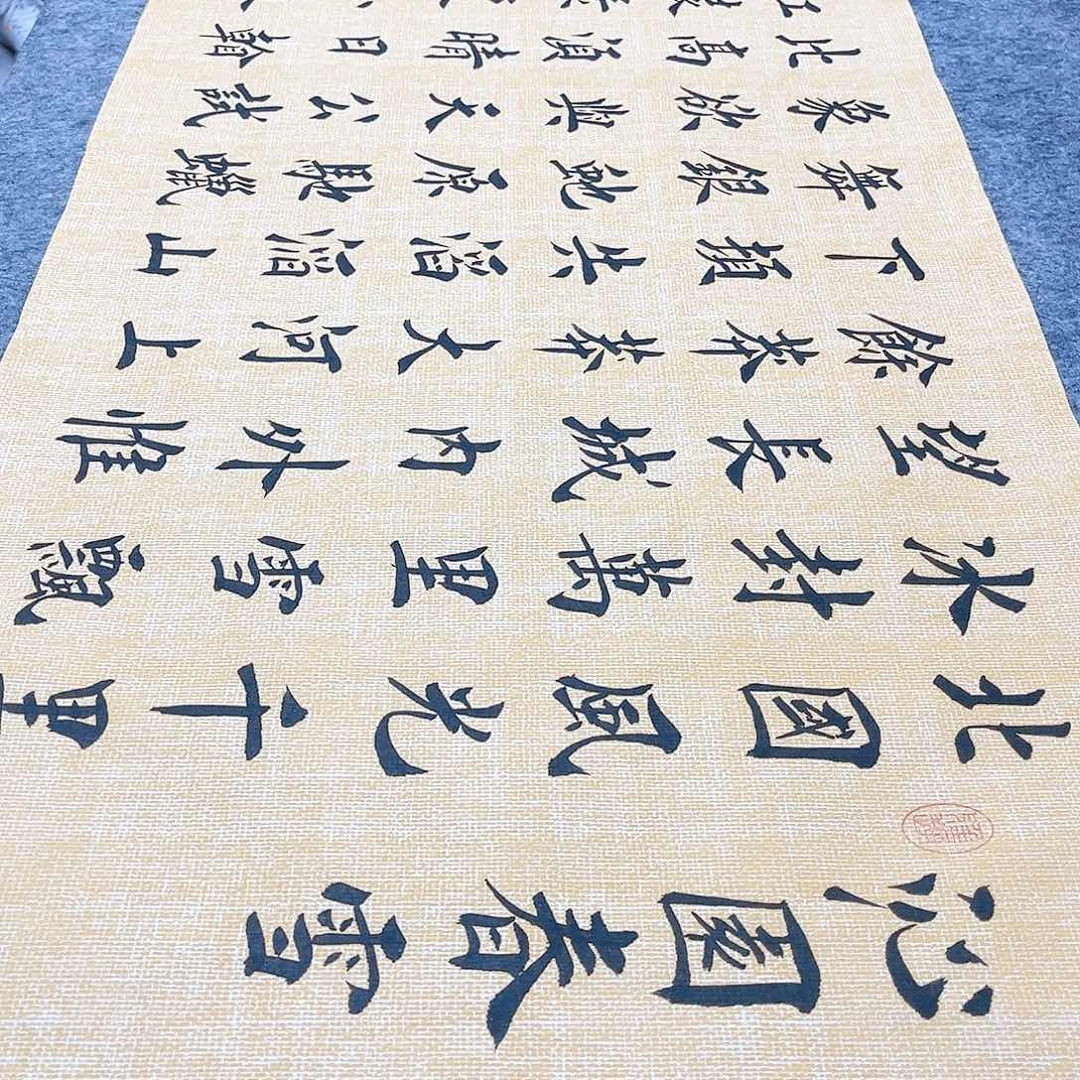 沁園春雪
北國風光千里
冰封萬里雪飄
望長城內外惟
餘莽莽大河上
下頓失滔滔山
舞銀蛇原馳蠟
象欲與天公試
比高須晴日